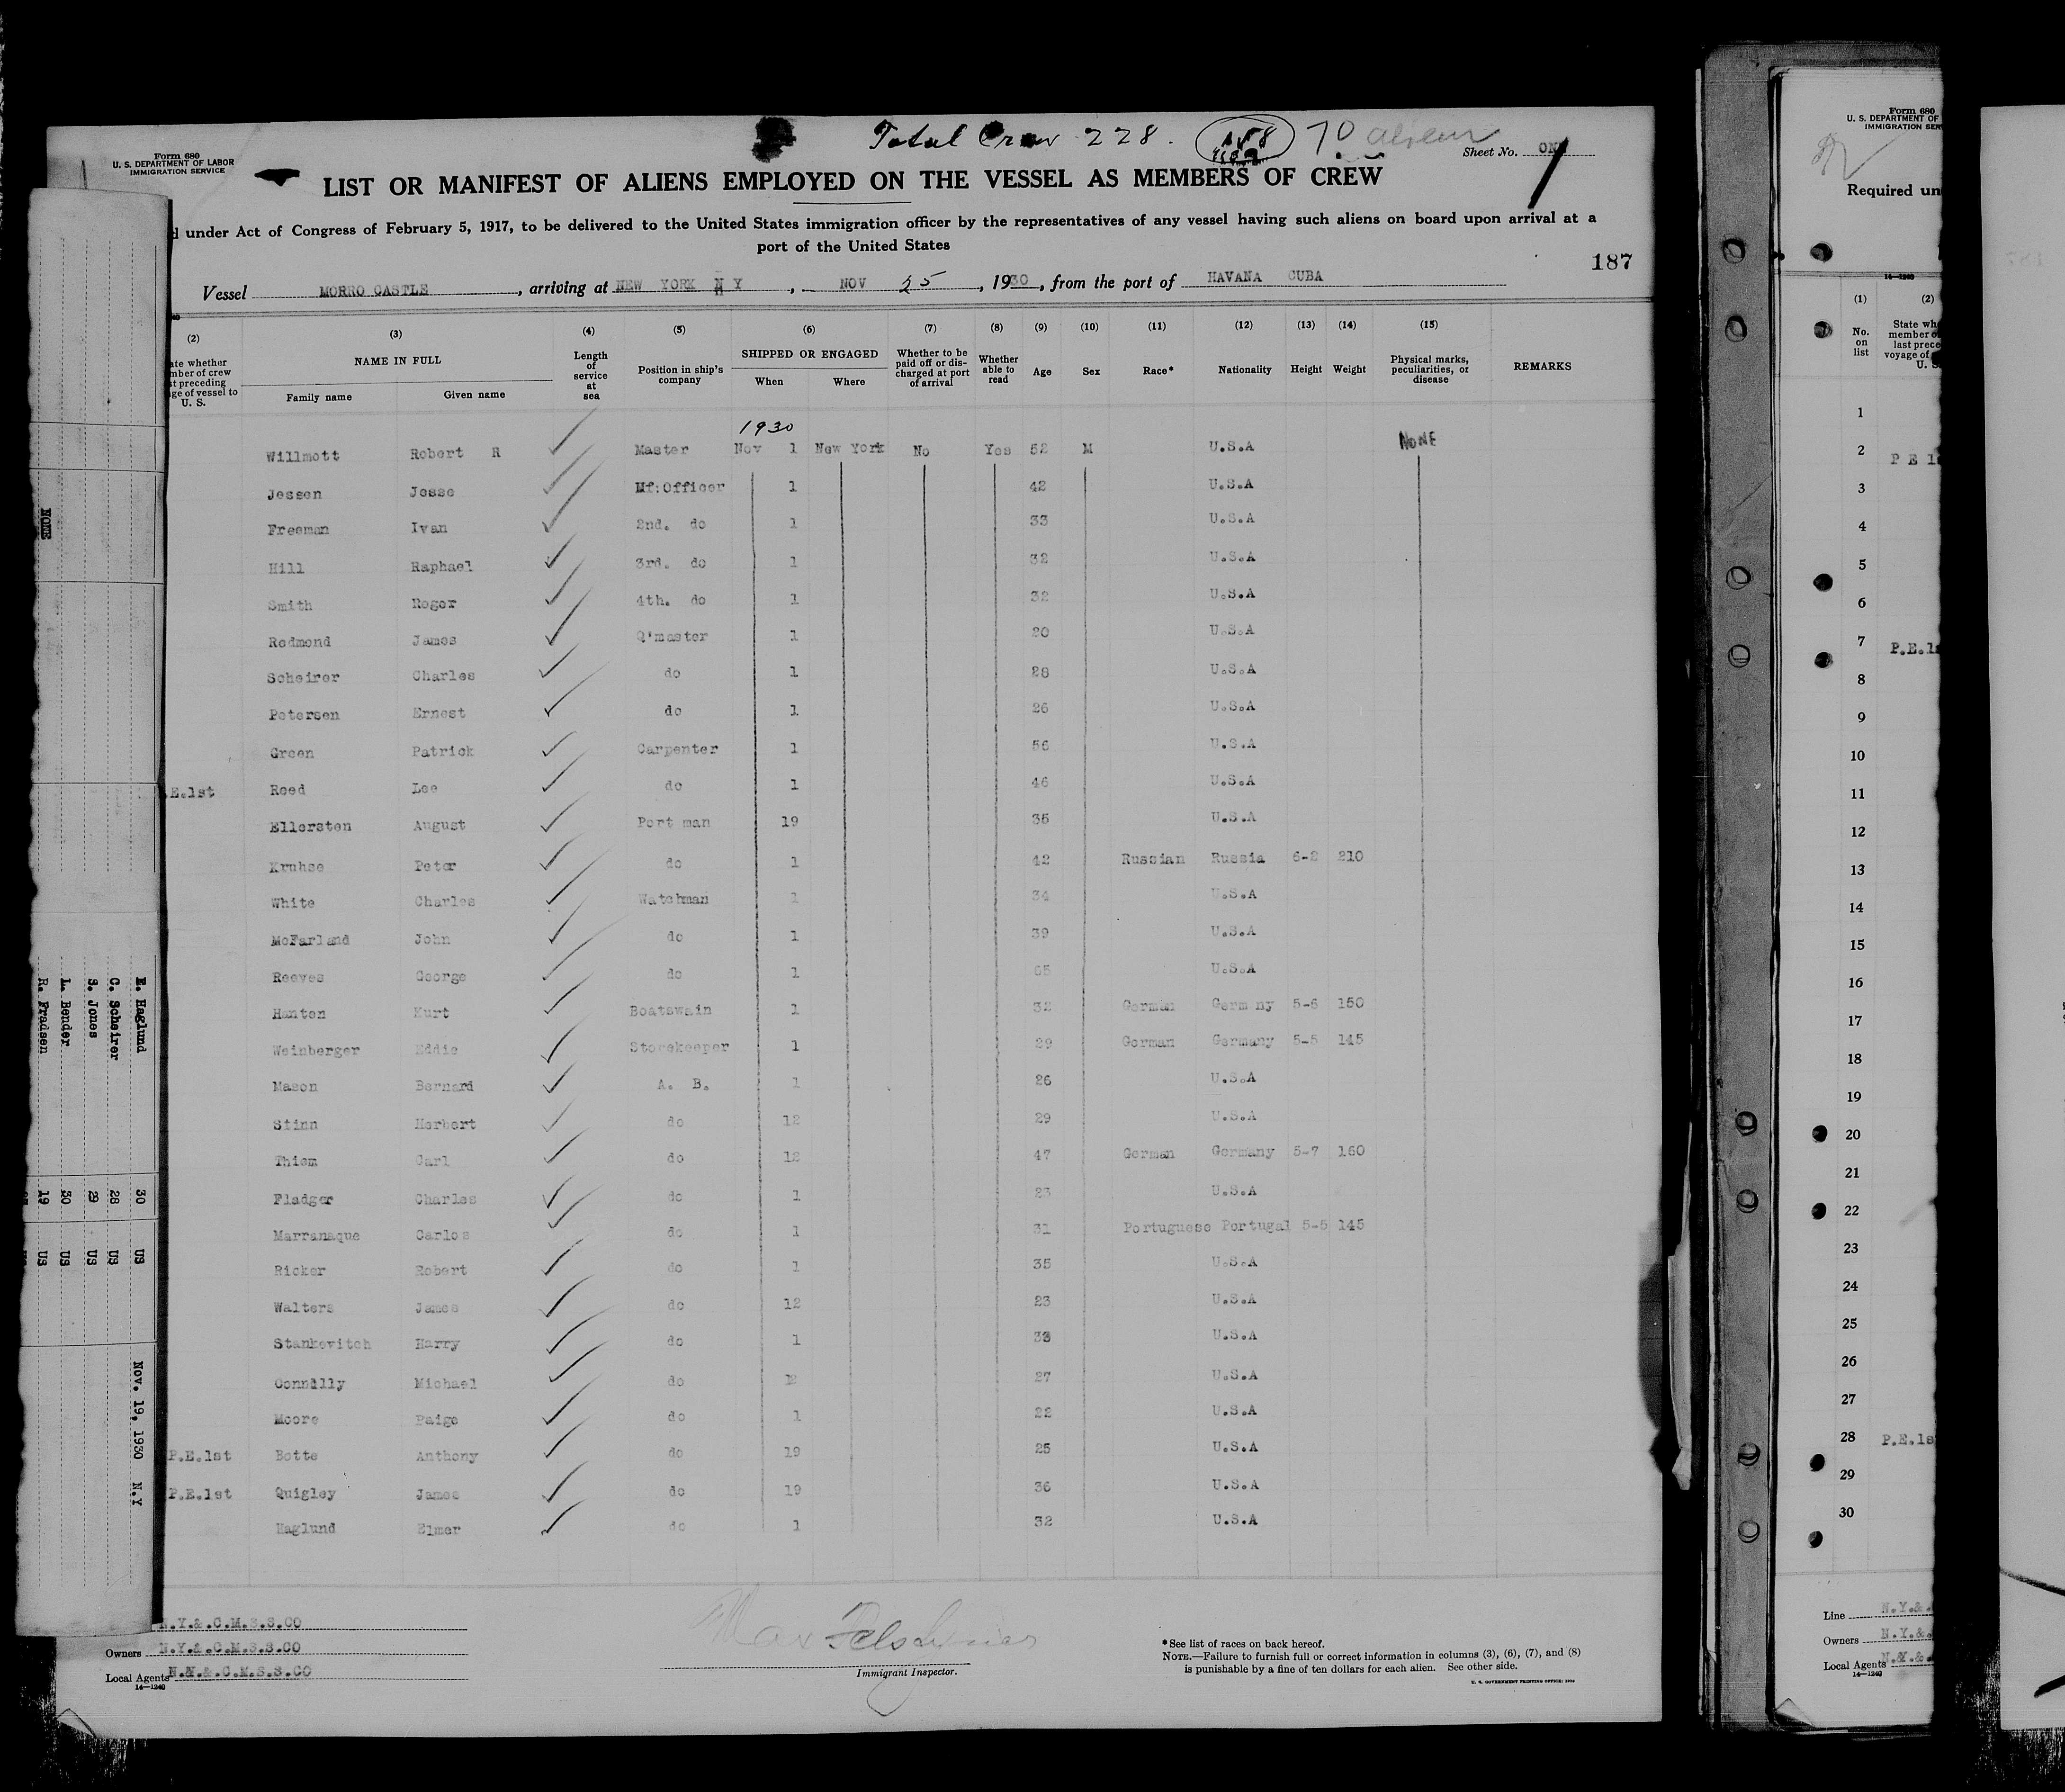 Total Crew 228. 158 70 aliens
Form 680
U. S. DEPARTMENT OF LABOR
IMMIGRATION SERVICE
Sheet No. ONE
LIST OR MANIFEST OF ALIENS EMPLOYED ON THE VESSEL AS MEMBERS OF CREW
d under Act of Congress of February 5, 1917, to be delivered to the United States immigration officer by the representatives of any vessel having such aliens on board upon arrival at a
port of the United States
187
Vessel MORRO CASTLE, arriving at NEW YORK N Y, NOV 25, 1930, from the port of HAVANA CUBA
(2) (3) (4) (5) (6) (7) (8) (9) (10) (11) (12) (13) (14) (15)
ate whether
mber of crew
t preceding
ge of vessel to
U. S.
NAME IN FULL
Family name Given name
Length
of
service
at
sea
Position in ship's
company
SHIPPED OR ENGAGED
When Where
Whether to be
paid off or dis-
charged at port
of arrival
Whether
able to
read
Age Sex Race* Nationality Height Weight
Physical marks,
peculiarities, or
disease
REMARKS
1930
Willmott Robert R Master Nov 1 New York No Yes 52 M U.S.A NONE
Jessen Jesse Mf:Officer 1 42 U.S.A
Freeman Ivan 2nd. do 1 33 U.S.A
Hill Raphael 3rd. do 1 32 U.S.A
Smith Roger 4th. do 1 32 U.S.A
Redmond James Q'master 1 20 U.S.A
Scheirer Charles do 1 28 U.S.A
Petersen Ernest do 1 26 U.S.A
Green Patrick Carpenter 1 56 U.S.A
.E.1st Reed Lee do 1 46 U.S.A
Ellersten August Port man 19 35 U.S.A
Kruhse Peter do 1 42 Russian Russia 6-2 210
White Charles Watchman 1 34 U.S.A
McFarland John do 1 39 U.S.A
Reeves George do 1 65 U.S.A
Hanten Kurt Boatswain 1 32 German Germ ny 5-6 150
Weinberger Eddie Storekeeper 1 29 German Germany 5-5 145
Mason Bernard A. B. 1 26 U.S.A
Stinn Herbert do 12 29 U.S.A
Thiem Carl do 12 47 German Germany 5-7 160
Fladger Charles do 1 23 U.S.A
Marranaque Carlos do 1 31 Portuguese Portugal 5-5 145
Ricker Robert do 1 35 U.S.A
Walters James do 12 23 U.S.A
Stankevitch Harry do 1 33 U.S.A
Connolly Michael do 27 U.S.A
Moore Paige do 1 22 U.S.A
P.E.1st Botte Anthony do 19 25 U.S.A
P.E.1st Quigley James do 19 36 U.S.A
Haglund Elmer do 1 32 U.S.A
N.Y.&.C.M.S.S.CO
Owners N.Y.&.C.M.S.S.CO
Local Agents N.Y.&.C.M.S.S.CO
14—1240
Immigrant Inspector.
*See list of races on back hereof.
NOTE.—Failure to furnish full or correct information in columns (3), (6), (7), and (8)
is punishable by a fine of ten dollars for each alien. See other side.
U. S. GOVERNMENT PRINTING OFFICE: 1930
NONE
E. Haglund 30 US Nov. 19, 1930 N.Y
C. Scheirer 28 US
S. Jones 29 US
L. Bender 30 US
R. Fradsen 19 US
Form 680
U. S. DEPARTMENT OF
IMMIGRATION SER
Required un
14—1240
(1) (2)
No.
on
list
State wh
member o
last prece
voyage of
U. S.
1
2 P E 1
3
4
5
6
7 P.E.1s
8
9
10
11
12
13
14
15
16
17
18
19
20
21
22
23
24
25
26
27
28 P.E.1s
29
30
Line N.Y.&.
Owners N.Y.&.
Local Agents N.Y.&.
14—1240